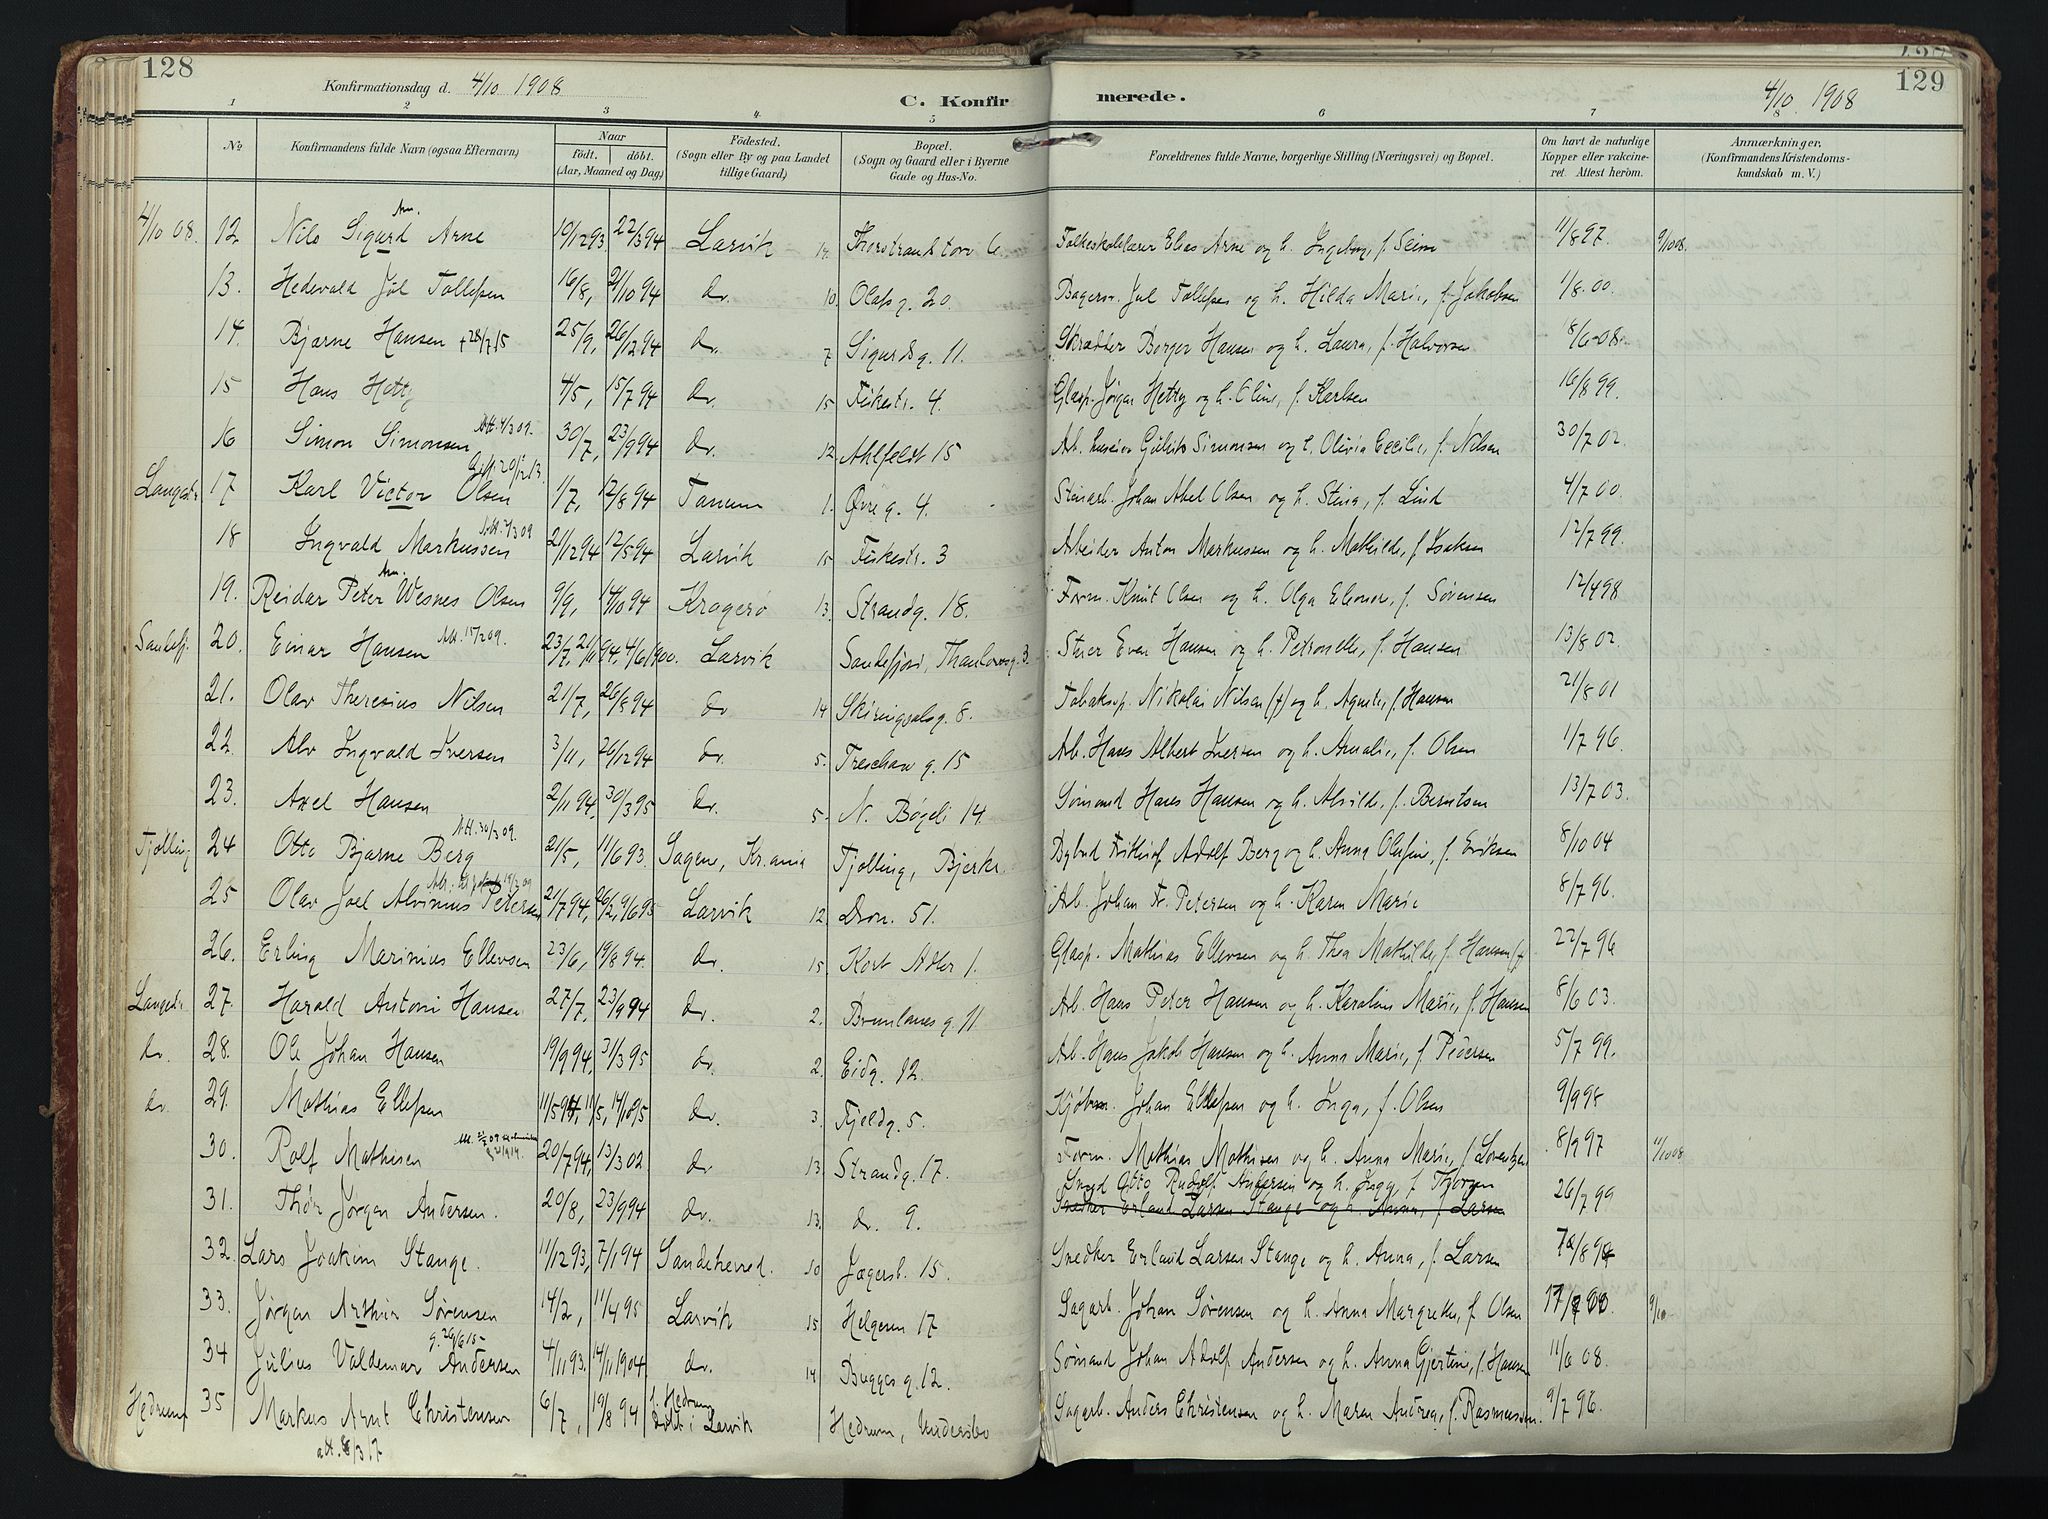 128
Konfirmationsdag d. 4/10 1908
C. Konfirmerede.
4/10 1908
129
1 2 3 4 5 6 7 8
No. Konfirmandens fulde Navn (ogsaa Efternavn) Naar født. døbt. (Aar, Maaned og Dag) Fødested. (Sogn eller By og paa Landet tillige Gaard) Bopæl. (Sogn og Gaard eller i Byerne Gade og Hus-No. Forældrenes fulde Navne, borgerlige Stilling (Næringsvei) og Bopæl. Om havt de naturlige Kopper eller vakcineret. Attest herom. Anmærkninger. (Konfirmandens Kristendomskundskab m. V.)
4/10 08. 12. Nils Sigurd Arne 10/12 93. 22/3 94 Larvik 14. Thorstrands torv 6. Folkeskolelærer Elias Arne og h. Ingeborg, f. Seim 11/8 97. 9/10 08.
13. Hedevald Jul Tollefsen 16/8, 21/10 94 do. 10. Olafsg. 20. Bagersv. Jul Tollefsen og h. Hilda Marie, f. Jakobsen 1/8 00.
14. Bjarne Hansen +28/7 15 25/9, 26/12 94 do. 7 Sigurdsg. 11. Skrædder Borger Hansen og h. Laura, f. Halvorsen 18/6 08.
15 Hans Hetty 4/5, 15/7 94 do. 15 Fiskestr. 4. Glasp. Jørgen Hetty og h. Oline, f. Karlsen 16/8 99.
16 Simon Simonsen Att. 4/3 09. 30/7, 23/9 94 do. 12. Ahlfeldt 15 Simonsen og h. Olivia Cecilie, f. Nilsen 30/7 02.
Langestr 17 Karl Victor Olsen Gift 20/12 13. 1/7, 12/8 94 Tanum 1. Øvre g. 4. Stenarb. Johan Abel Olsen og h. Stina, f. Lind 4/7 00.
18 Ingvald Markussen 21/12 94 12/5 94 Larvik 15 Fiskestr. 3 Arbeider Anton Markussen og h. Mathilde, f. Isaksen 12/7 99.
19. Reidar Peter Wesnes Olsen 9/9, 14/10 94 Kragerø 13. Strandg. 18. Form. Knut Olsen og h. Olga Eleonor, f. Sørensen 12/4 98
Sandefj. 20. Einar Hansen Att. 15/2 09. 23/7, 94, 4/6 1900. Larvik Sandefjord, Thaulowsg. 3. Even Hansen og h. Petronelle, f. Hansen 13/8 02.
21. Olav Theresius Nilsen 21/7, 26/8 94 do 14 Skiringsalsg. 8. Tobaksp. Nikolai Nilsen (†) og h. Agnete, f. Hansen 21/8 01
22. Alv Ingvald Iversen 3/11, 26/12 94 do. 5. Treschow g. 15 Arb. Hans Albert Iversen og h. Amalie, f. Olsen 1/7 96.
23. Axel Hansen 2/11 94, 30/3 95 do. 5. N. Bøgeli 14. Sømand Hans Hansen og h. Alvilde, f. Berntsen 13/7 03.
Tjølling 24 Otto Bjarne Berg Att. 30/3 09. 21/5, 11/6 93. Sagene, Kr.ania Tjølling, Bjerke Bybud Frithjof Adolf Berg og h. Anna Olufine, f. Eriksen 8/10 04
25 Olav Joel Alvinius Petersen 21/7 94, 26/2, 9/6 95 Larvik 12. Dron. 51. Arb. Johan Fr. Petersen og h. Karen Marie 8/7 96.
26. Erling Marinius Ellevsen 23/6, 19/8 94. do. 15. Kort Adler 1. Glasp. Mathias Ellevsen og h. Thea Mathilde, f. Hansen (†) 22/7 96
Langestr 27. Harald Antoni Hansen 27/7, 23/9 94 do. 2. Brunlanes g. 11. Arb. Hans Peter Hansen og h. Karoline Marie, f. Hansen 8/6 03.
do. 28. Ole Johan Hansen 19/9 94, 31/3 95 do. 2. Eidg. 12. Arb. Hans Jakob Hansen og h. Anna Marie, f. Pedersen 5/7 99.
do. 29. Mathias Ellefsen do. 3. Fjeldg. 5. Kjøbm. Johan Ellefsen og h. Inga, f. Olsen 9/9 95
30. Rolf Mathisen 20/7 94, 13/3 02. do 13. Strandg. 17. Form. Mathias Mathisen og h. Anna Marie, f. Lorentzen 8/9 97 11/10 08
31. Thor Jørgen Andersen. 20/8, 23/9 94 do. 13. do. 9. Smed Otto Rudolf Andersen og h. Inga, f. Thorsen 26/7 99
Snedker Erland Larsen Stange og h. Anna, f. Larsen
32. Lars Joakim Stange. 11/12 93, 7/1 94 Sandeherred. 10 Jægersb. 15. Snedker Erland Larsen Stange og h. Anna, f. Larsen
33. Jørgen Arthur Sørensen 14/2, 11/4 95 Larvik 15 Helgesen 17 Sagarb. Johan Sørensen og h. Anna Margrethe, f. Olsen 9/10
34 Julius Valdemar Andersen g. 26/6 15 4/11 93. 14/11 1904. do. 14 Bugges g. 12. Sømand Johan Adolf Andersen og h. Anna Gjertine, f. Hansen 11/6 08.
Hedrum 35 Markus Arnt Christensen 6/7, 19/8 94 f. Hedrum døbt i Larvik Hedrum, Undersbo Sagarb. Anders Christensen og h. Maren Andrea, f. Rasmussen. 9/7 96.
att. 8/3 17